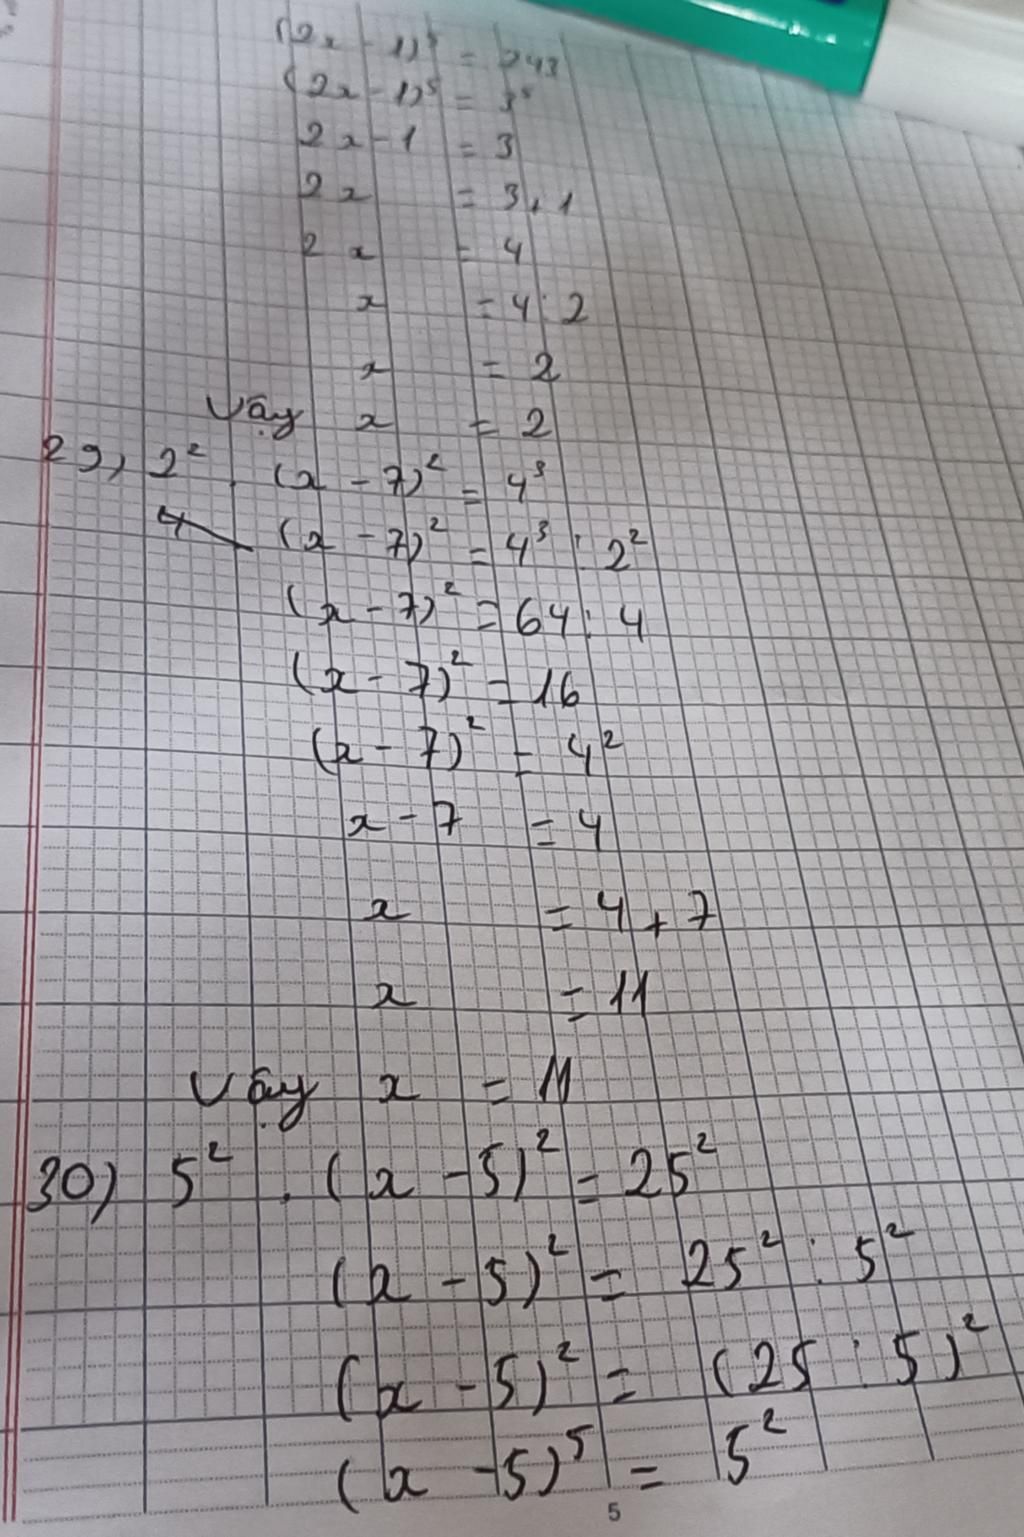 (2x - 1)⁵ = 243
(2x - 1)⁵ = 3⁵
2x - 1 = 3
2x = 3 + 1
2x = 4
x = 4 : 2
x = 2
Vậy x = 2
29) 2² . (x - 7)² = 4³
(x - 7)² = 4³ : 2²
(x - 7)² = 64 : 4
(x - 7)² = 16
(x - 7)² = 4²
x - 7 = 4
x = 4 + 7
x = 11
Vậy x = 11
30) 5² . (x - 5)² = 25²
(x - 5)² = 25² : 5²
(x - 5)² = (25 : 5)²
(x - 5)⁵ = 5²
5